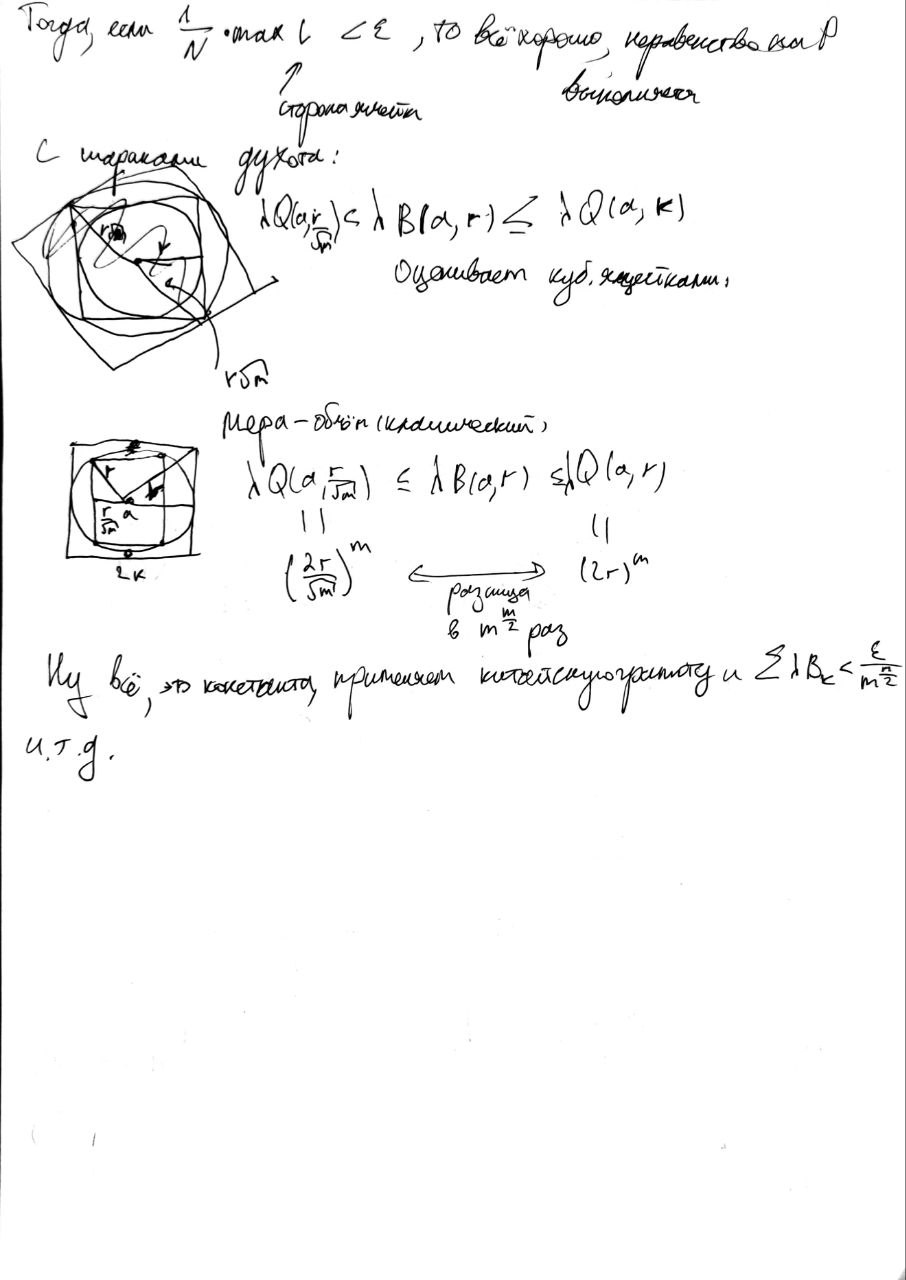 Тогда, если 1/N · max l < ε, то всё хорошо, неравенство на P
выполняется
↑
сторона ячейки
С шариками духота:
λQ(a, r/√m) ≤ λB(a, r) ≤ λQ(a, r)
r√m
r
Оценивает куб. ячейками.
r√m
Мера – объём (классический)
λQ(a, r/√m) ≤ λB(a, r) ≤ λQ(a, r)
r
r
r/√m
a
|| ||
(2r/√m)^m ⟷ (2r)^m
2r
разница
в m^(m/2) раз
Ну всё, это константа, применяем китайскую грамоту и ΣλB_k < ε/m^(m/2)
и.т.д.